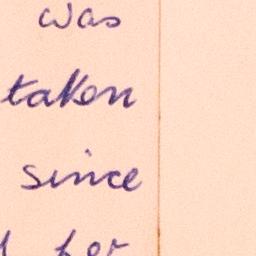 was
taken
since
for